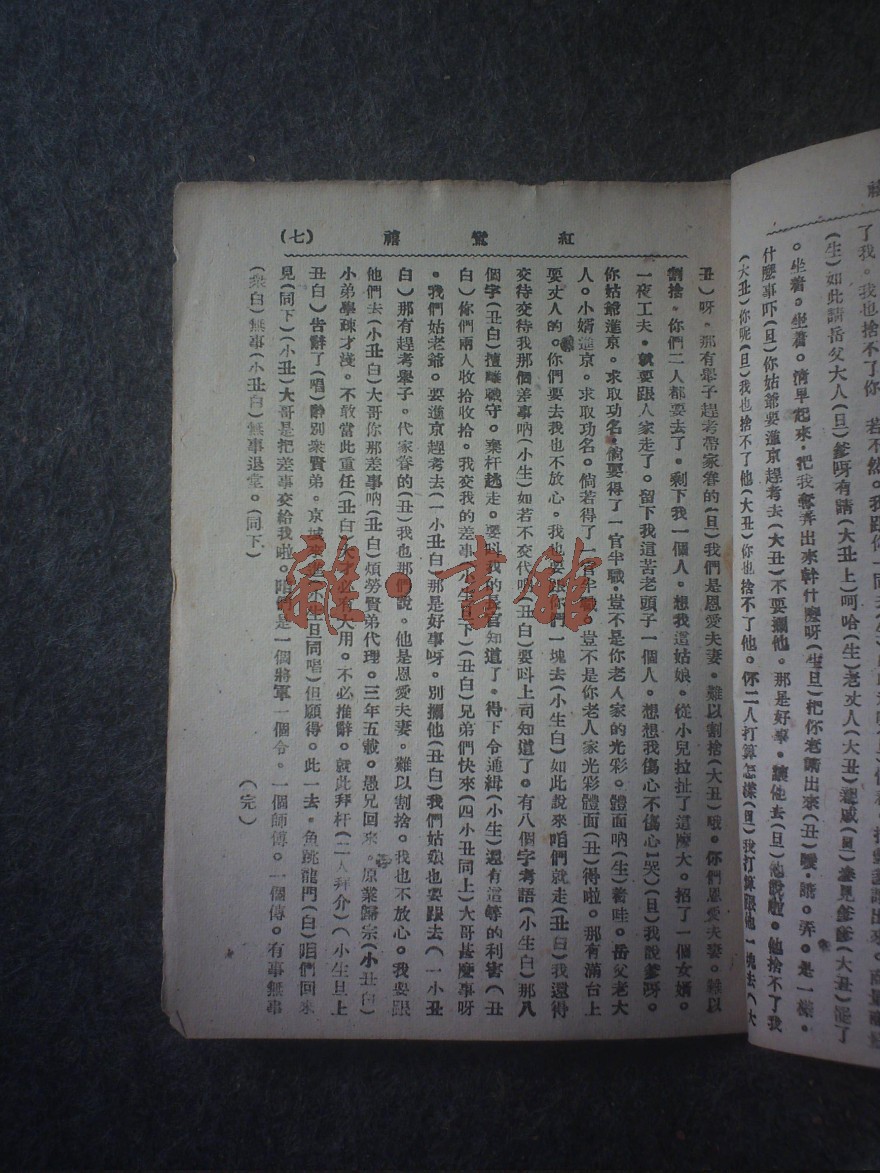 了我。我也捨不了你
(生)如此請岳父大人(旦)爹呀有請(大丑上)呵哈(生)老丈人(大丑)
。坐着。坐着。清早起來。把我奪弄出來幹什麼呀(生旦)把你老請出來(丑)噯。請。弄。是一樣。
什麼事吓(旦)你姑爺要進京趕考去(大丑)不要攔他。那是好事。讓他去(旦)他說啦。他捨不了我
(大丑)你呢(旦)我也捨不了他(大丑)你也捨不了他。你二人打算怎樣(旦)我打算跟他一塊去(大
紅鸞禧
(七)
丑)呀。那有舉子趕考帶家眷的(旦)我們是恩愛夫妻。難以割捨(大丑)哦。你們恩愛夫妻。難以
割捨。你們二人都要去了。剩下我一個人。想我這姑娘。從小兒拉扯了這麼大。招了一個女婿。
一夜工夫。就要跟人家走了。留下我這苦老頭子一個人。想想我傷心不傷心(哭)(旦)我說爹呀。
你姑爺進京。求取功名。倘要得了一官半職。豈不是你老人家的光彩。體面吶(生)着哇。岳父老大
人。小婿進京。求取功名。倘若得了一官半職。豈不是你老人家光彩體面(丑)得啦。那有滿台上
要丈人的。你們要去我也不放心。我也要跟你們一塊去(小生白)如此說來咱們就走(丑白)我還得
交待交待我那個差事吶(小生)如若不交代呢(丑白)要呌上司知道了。有八個字考語(小生白)那八
個字(丑白)擅離職守。棄杆逃走。要呌我的長官知道了。得下令通緝(小生)還有這等的利害(丑
白)你們兩人收拾收拾。我交我的差事(小生旦下)(丑白)兄弟們快來(四小丑同上)大哥甚麼事呀
。我們姑老爺。要進京趕考去(一小丑白)那是好事呀。別攔他(丑白)我們姑娘也要跟去(一小丑
白)那有趕考舉子。代家眷的(丑)我也那們說。他是恩愛夫妻。難以割捨。我也不放心。我要跟
他們去(小丑白)大哥你那差事吶(丑白)煩勞賢弟代理。三年五載。愚兄回來。原業歸宗(小丑白)
小弟學疎才淺。不敢當此重任(丑白)大才必有大用。不必推辭。就此拜杆(二人拜介)(小生旦上
丑白)告辭了(唱)辭別衆賢弟。京城(小生旦同唱)但願得。此一去。魚跳龍門(白)咱們回來
見(同下)(小丑)大哥是把差事交給我啦。咱們是一個將軍一個令。一個師傅。一個傳。有事無事
(衆白)無事(小丑白)無事退堂。(同下)
(完)
雜·書館